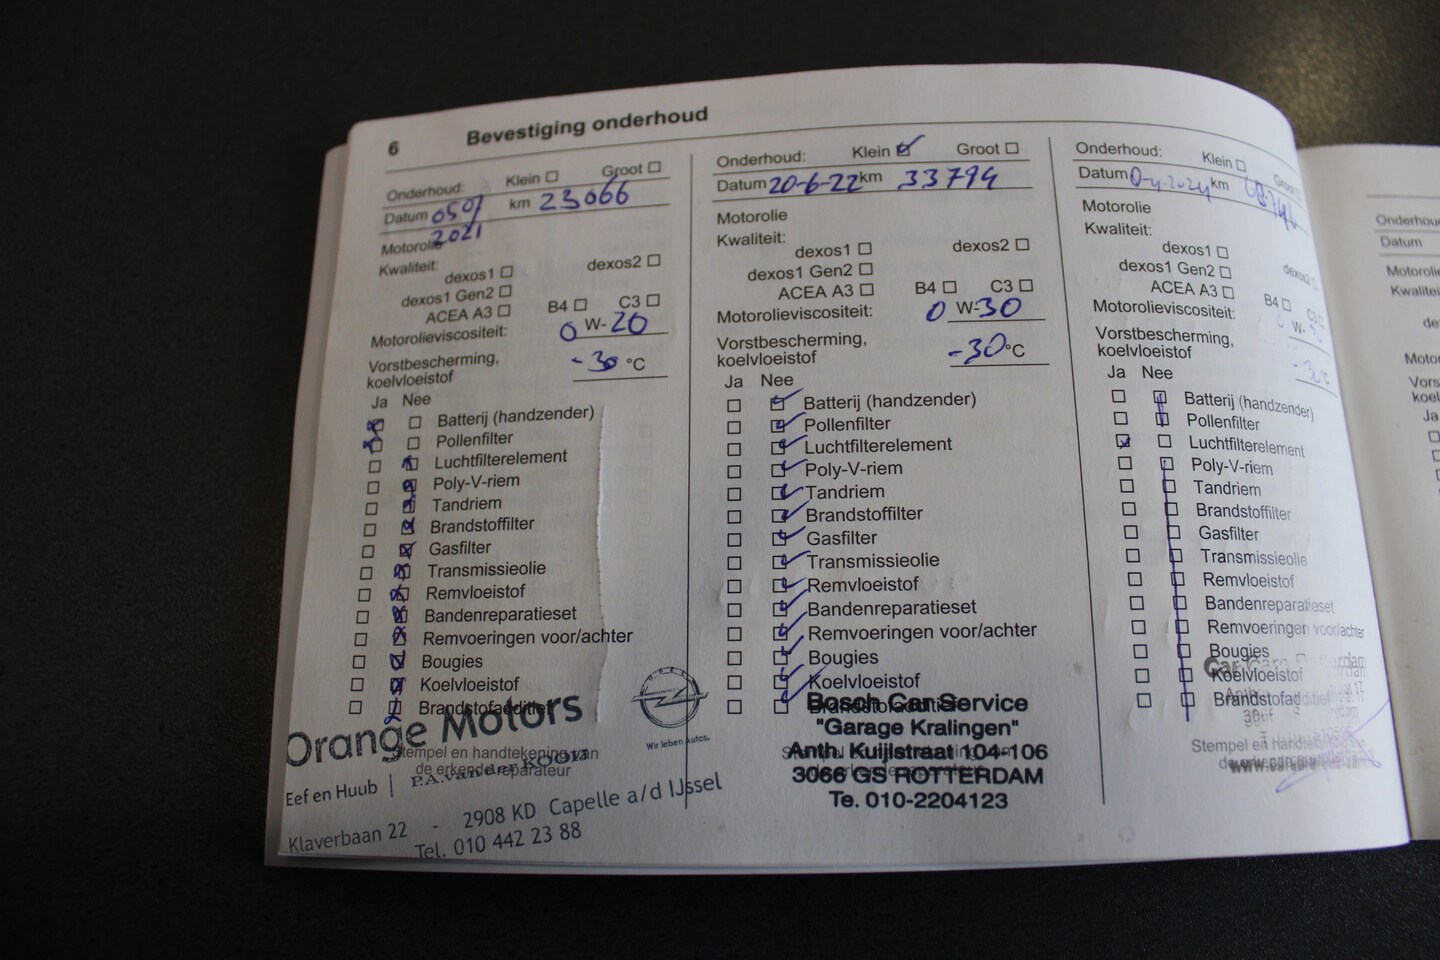 6 Bevestiging onderhoud
Onderhoud: Klein Groot
Datum 0507 2021 km 23066
Motorolie
Kwaliteit:
dexos1 dexos2
dexos1 Gen2
ACEA A3 B4 C3
Motorolieviscositeit: 0 W-20
Vorstbescherming,
koelvloeistof -30 °C
Ja Nee
Batterij (handzender)
Pollenfilter
Luchtfilterelement
Poly-V-riem
Tandriem
Brandstoffilter
Gasfilter
Transmissieolie
Remvloeistof
Bandenreparatieset
Remvoeringen voor/achter
Bougies
Koelvloeistof
Brandstofadditief
Stempel en handtekening van
de erkende reparateur
Orange Motors
Eef en Huub | P.A. van der Kooij
Klaverbaan 22 - 2908 KD Capelle a/d IJssel
Tel. 010 442 23 88
OPEL
Wir leben Autos.
Onderhoud: Klein Groot
Datum 20-6-22 km 33794
Motorolie
Kwaliteit:
dexos1 dexos2
dexos1 Gen2
ACEA A3 B4 C3
Motorolieviscositeit: 0 W-30
Vorstbescherming,
koelvloeistof -30 °C
Ja Nee
Batterij (handzender)
Pollenfilter
Luchtfilterelement
Poly-V-riem
Tandriem
Brandstoffilter
Gasfilter
Transmissieolie
Remvloeistof
Bandenreparatieset
Remvoeringen voor/achter
Bougies
Koelvloeistof
Brandstofadditief
Bosch Car Service
"Garage Kralingen"
Anth. Kuijlstraat 104-106
3066 GS ROTTERDAM
Te. 010-2204123
Onderhoud: Klein Groot
Datum km
Motorolie
Kwaliteit:
dexos1 dexos2
dexos1 Gen2
ACEA A3 B4 C3
Motorolieviscositeit: W-
Vorstbescherming,
koelvloeistof °C
Ja Nee
Batterij (handzender)
Pollenfilter
Luchtfilterelement
Poly-V-riem
Tandriem
Brandstoffilter
Gasfilter
Transmissieolie
Remvloeistof
Bandenreparatieset
Remvoeringen voor/achter
Bougies
Koelvloeistof
Brandstofadditief
Stempel en
Datum